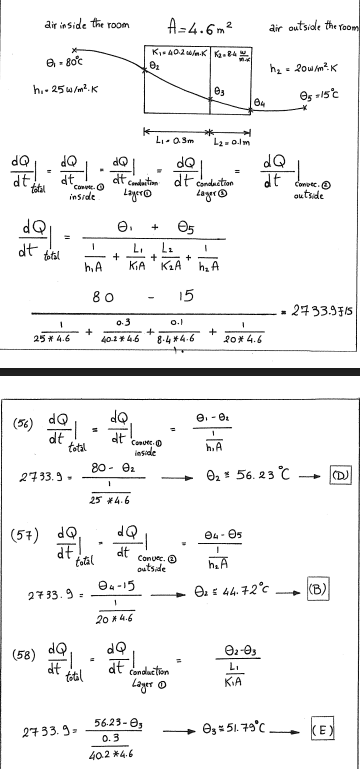 air inside the room
A = 4.6 m²
air outside the room
K₁ = 40.2 w/m.K
K₂ = 8.4 w/m.K
θ₁ = 80°C
θ₂
h₂ = 20 w/m².K
h₁ = 25 w/m².K
θ₃
θ₄
θ₅ = 15°C
L₁ = 0.3m
L₂ = 0.1m
dQ/dt|total = dQ/dt|Convec.① inside = dQ/dt|Conduction Layer① = dQ/dt|Conduction Layer② = dQ/dt|Convec.② outside
dQ/dt|total = (θ₁ + θ₅) / (1/h₁A + L₁/K₁A + L₂/K₂A + 1/h₂A)
(80 - 15) / (1/25*4.6 + 0.3/40.2*4.6 + 0.1/8.4*4.6 + 1/20*4.6) = 2733.9 J/s
(56) dQ/dt|total = dQ/dt|Convec.① inside = (θ₁ - θ₂) / (1/h₁A)
2733.9 = (80 - θ₂) / (1/25*4.6) → θ₂ ≅ 56.23°C → (D)
(57) dQ/dt|total = dQ/dt|Convec.② outside = (θ₄ - θ₅) / (1/h₂A)
2733.9 = (θ₄ - 15) / (1/20*4.6) → θ₂ ≅ 44.72°C → (B)
(58) dQ/dt|total = dQ/dt|Conduction Layer① = (θ₂ - θ₃) / (L₁/K₁A)
2733.9 = (56.23 - θ₃) / (0.3/40.2*4.6) → θ₃ ≅ 51.79°C → (E)